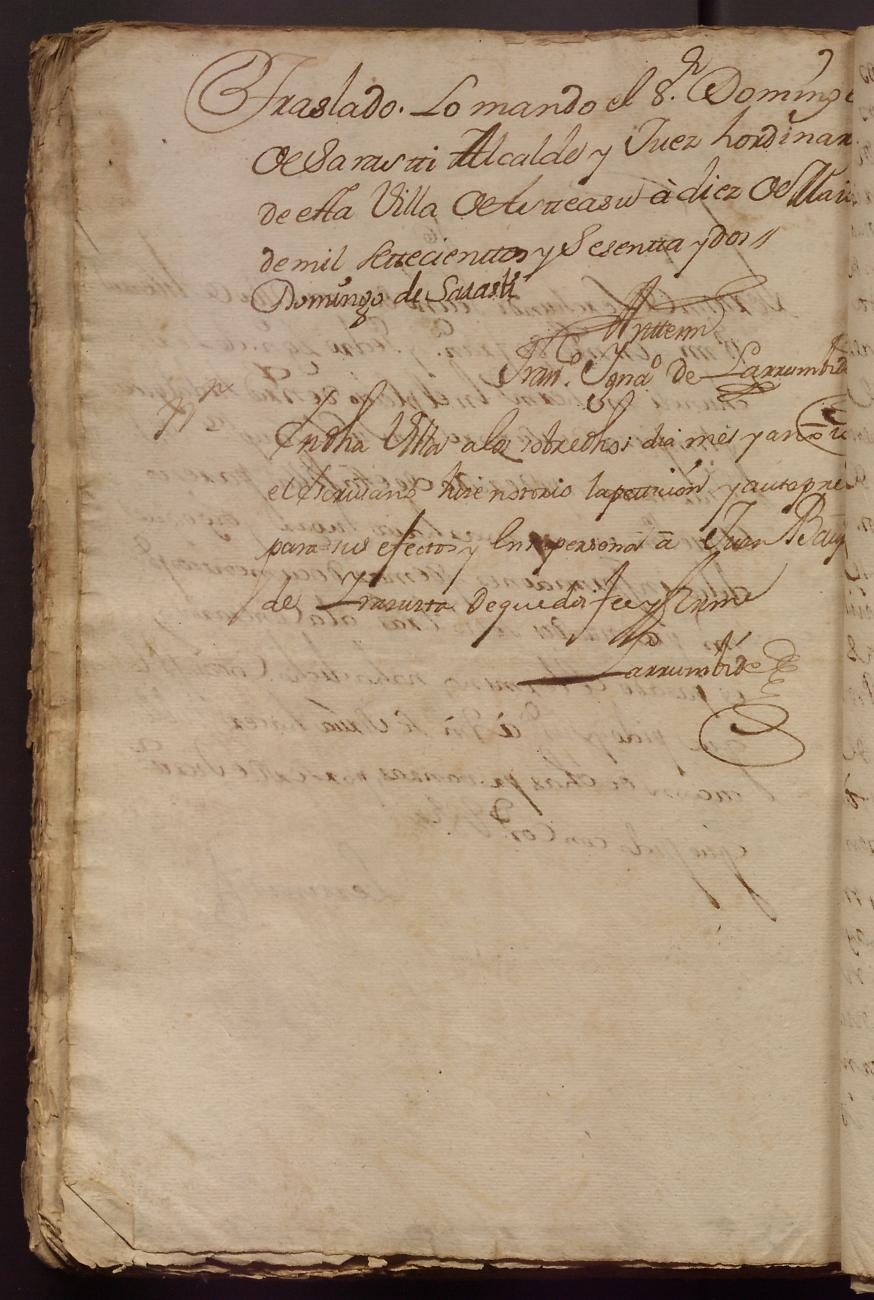 Traslado. Lo mando el S.r Domingo
de Sarasti Alcalde y Juez hordinar
de esta Villa de Urreasu à diez de Maio
de mil settecienttos y Sesentta y dos //
Domingo de Sarasti
Antte mi
Fran.co Ygna.o de Larrumbide
En dha Villa a los sobredhos dia mes y año io
el escrivano hize notorio la peticion y auto pre
para sus efectos y en persona à Juan Baup
de Ynsurta de que doi fee y firme
Larrumbide